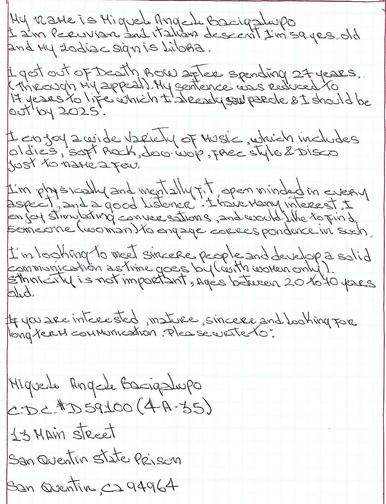 My name is Miguel Angelo Bacigalupo
I am Peruvian and Italian descent I'm 59 yrs. old
and my zodiac sign is Libra.
I got out of Death Row after spending 27 years.
(through my appeal). My sentence was reduced to
17 years to life which I already saw parole & I should be
out by 2025.
I enjoy a wide variety of music, which includes
oldies, soft Rock, doo-wop, free style & Disco
just to name a few.
I'm physically and mentally fit, open minded in every
aspect, and a good listener. I have many interest, I
enjoy stimulating conversations, and would like to find
someone (woman) to engage correspondence in such.
I'm looking to meet sincere people and develop a solid
communication as time goes by (with women only).
Ethnicity is not important, ages between 20 to 70 years
old.
If you are interested, mature, sincere and looking for
long term communication. Please write to:
Miguel Angelo Bacigalupo
C.D.C. #D59100 (4-A-35)
13 Main Street
San Quentin State Prison
San Quentin, CA 94964